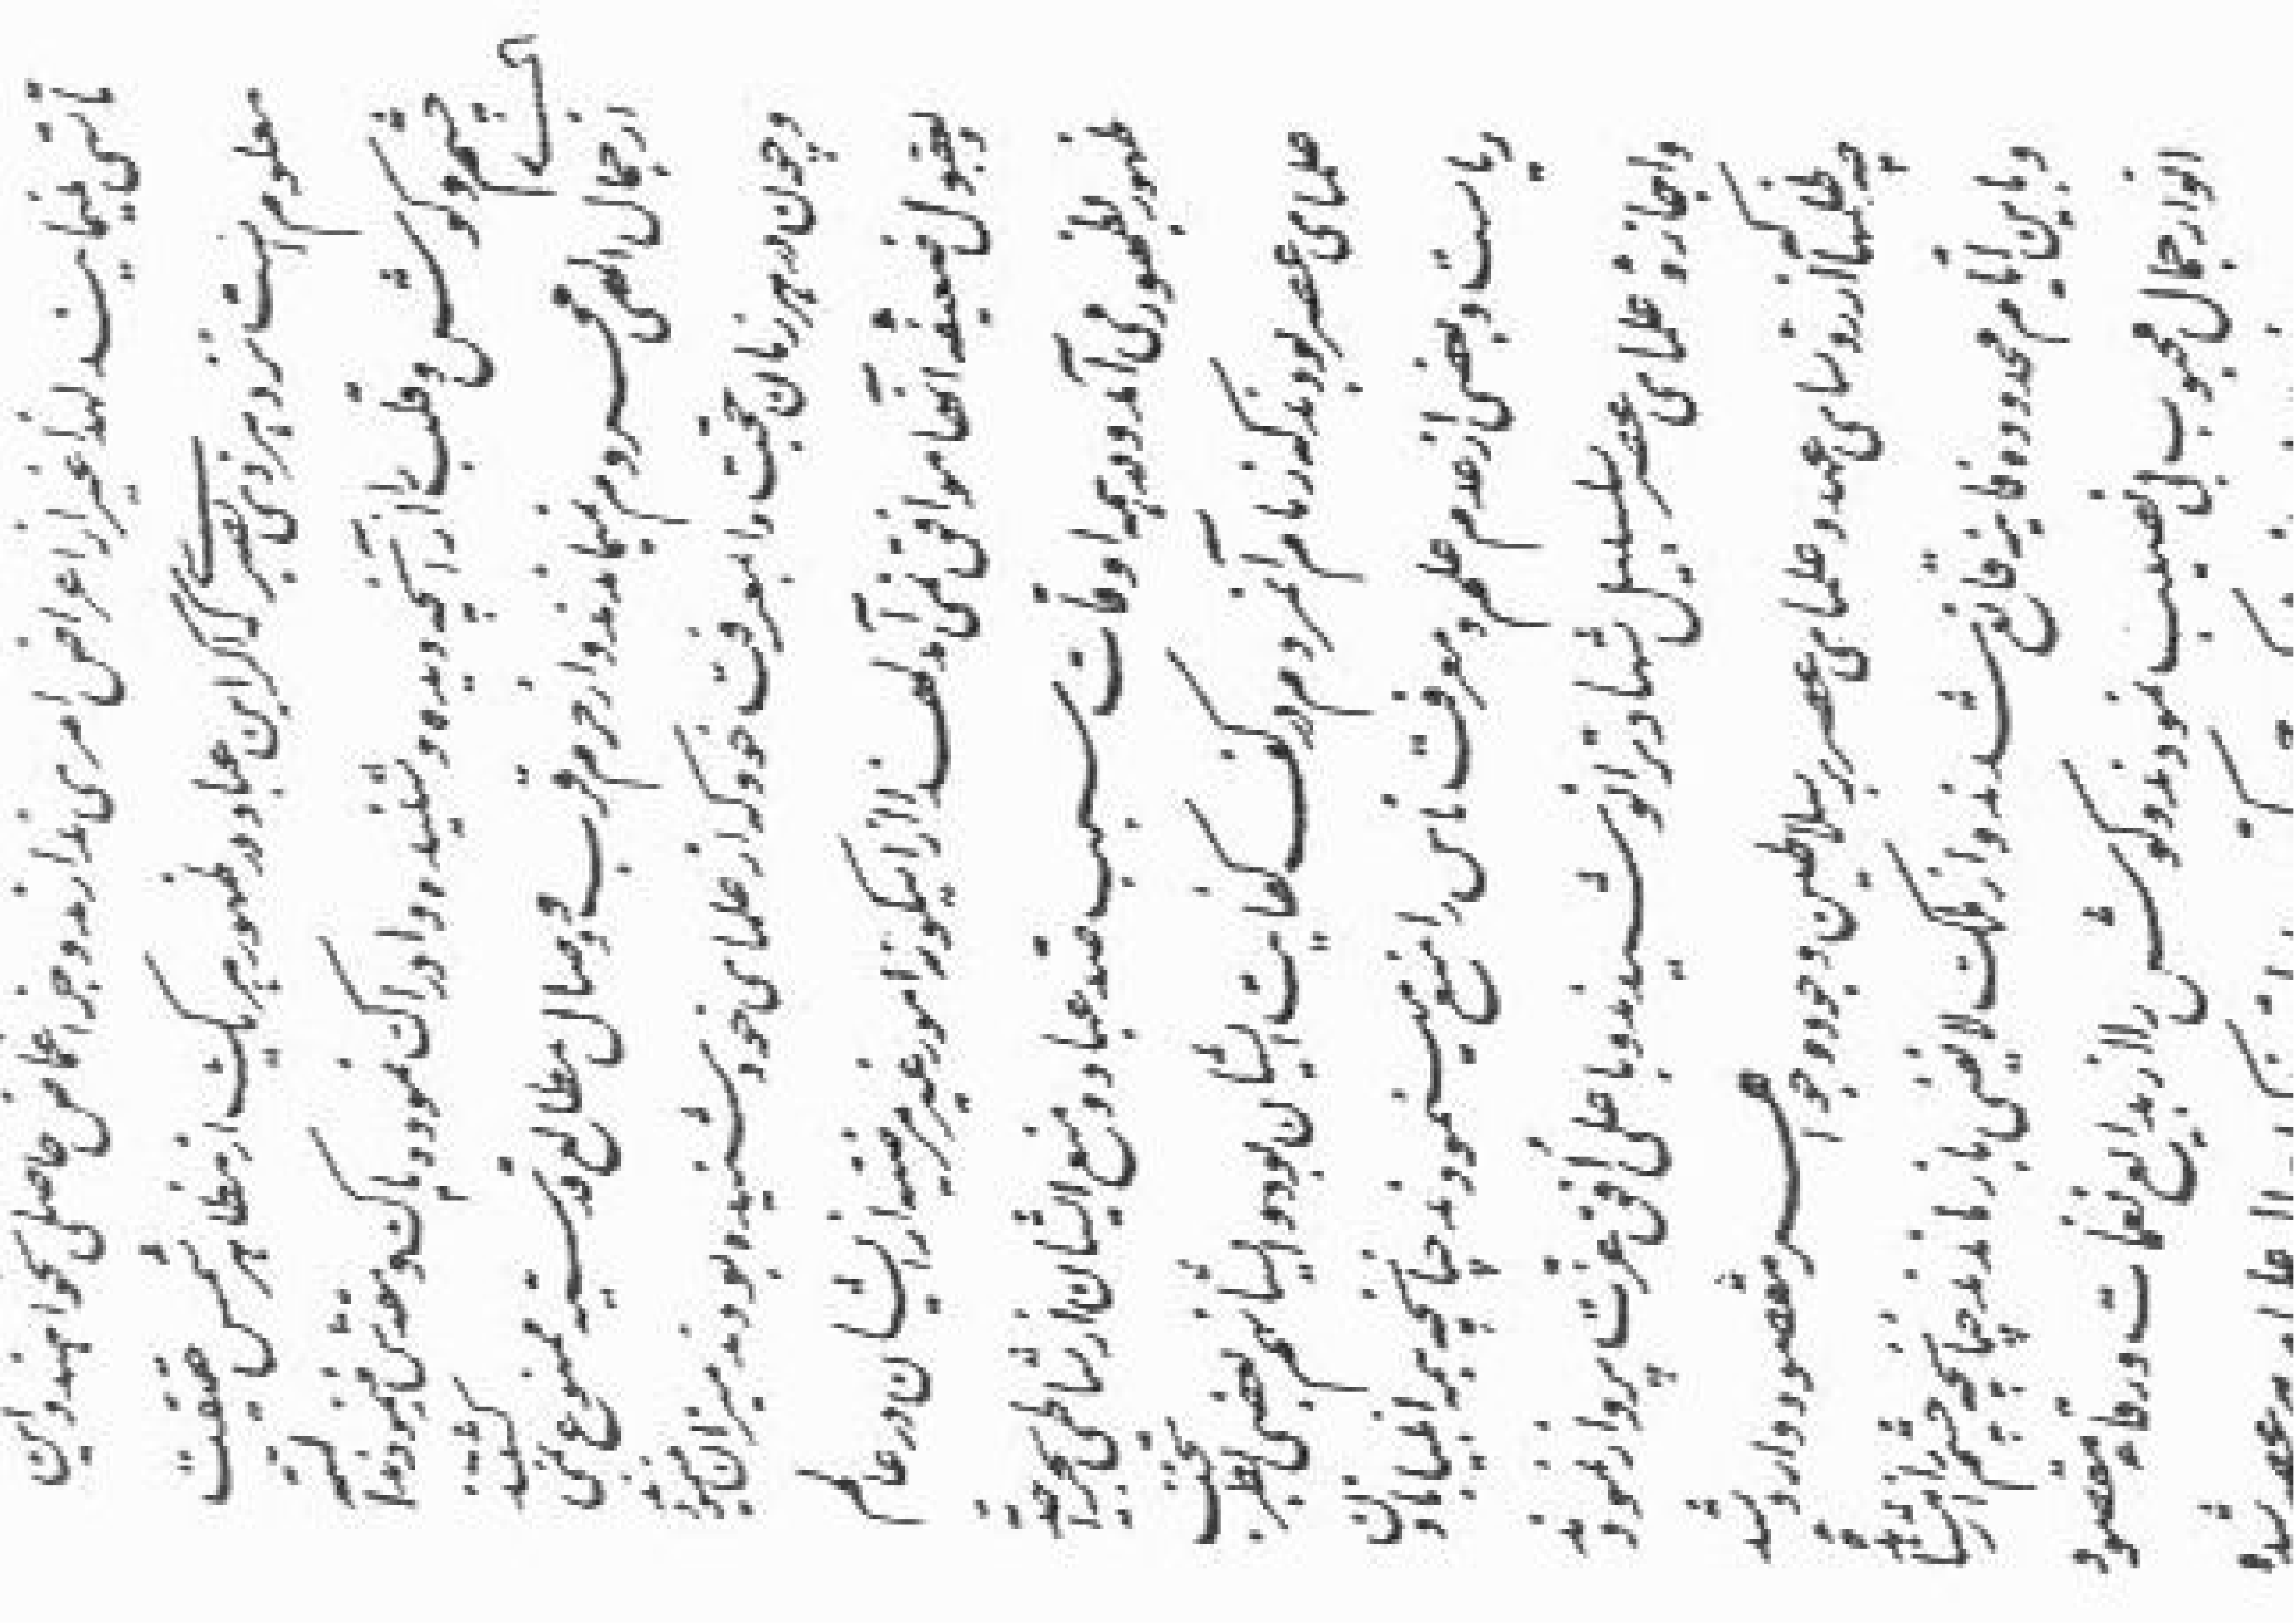 نمایند لهذا غیر از اعراض امری ندارند و جز اغماض حاصلی نخواهند و این
معلوم است نزد هر ذی بصری که اگر این عباد در ظهور هر یک از مظاهر شمس حقیقت
چشم و گوش و قلب را از آنچه دیده و شنیده و ادراک نموده پاک و مقدس مینمودند البته
از جمال الهی محروم نمیماندند و از حرم قرب و وصال مطالع قدسیه ممنوع نمیگشتند
و چون در هر زمان حجت را بمعرفت خود که از علمای خود شنیده بودند میزان مینمودند
و بعقول ضعیفه آنها موافق نمی آمد لهذا از اینگونه امور غیر مرضیه از ایشان در عالم
ظهور بظهور می آمد و در همه اوقات سبب صد عباد و منع ایشان از شاطی بحر احدیه
علمای عصر بوده اند که زمام آن مردم در کف کفایت ایشان بود و ایشان هم بعضی نظر بحب
ریاست و بعضی از عدم علم و معرفت ناس را منع مینمودند چنانچه همه انبیا باذن
و اجازه علمای عصر سلسبیل شهادت را نوشیدند و باعلی افق عزت پرواز نمودند
چه ظلمها که از رؤسای عهد و علمای عصر بر سلاطین وجود و جواهر مقصود وارد شد
و باین ایام محدوده فانیه قانع شدند و از ملک لا یفنی باز ماندند چنانچه چشم را از مشاهده
انوار جمال محبوب بی نصیب نمودند و گوش را از بدایع نغمات ورقاء مقصود